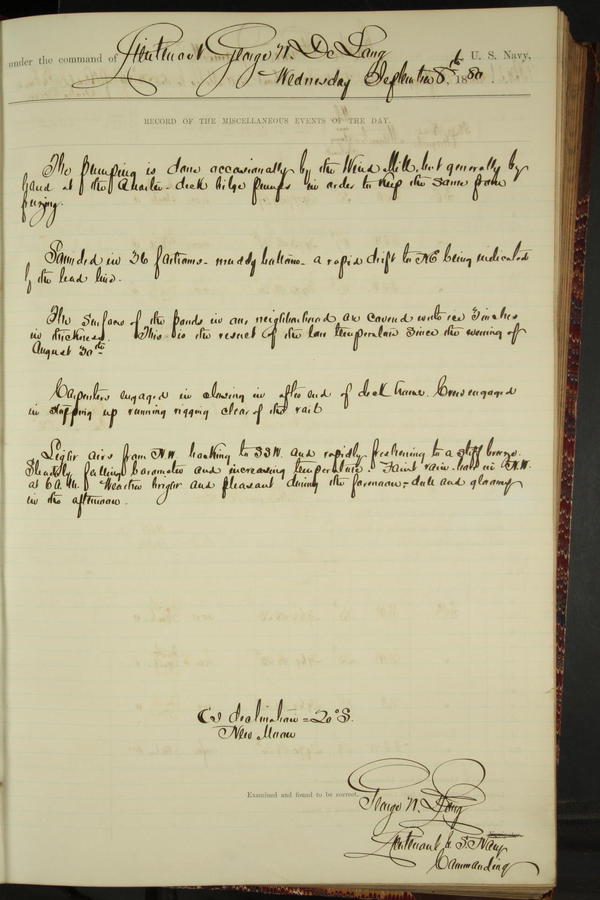 under the command of Lieutenant George W. De Long U. S. Navy,
Wednesday September 8th, 1880.
RECORD OF THE MISCELLANEOUS EVENTS OF THE DAY.
The pumping is done occasionally by the Wind Mill, but generally by
hand at the Quarter-deck bilge pumps in order to keep the same from
freezing.
Sounded in 36 fathoms - muddy bottom - a rapid drift to NE being indicated
by the lead line.
The surface of the ponds in our neighborhood are covered with ice 3 inches
in thickness. This is the result of the low temperature since the evening of
August 30th
Carpenters engaged in closing in after end of deck house. Crew engaged
in stopping up running rigging clear of the rail
Light airs from N.W. backing to SSW. and rapidly freshening to a stiff breeze.
Steadily falling barometer and increasing temperature. Faint rain-bow in N.W.
at 6 A.M. Weather bright and pleasant during the forenoon - dull and gloomy
in the afternoon.
(☾'s declination = 20° S.
New Moon
Examined and found to be correct.
George W. De Long
Lieutenant U. S. Navy
Commanding